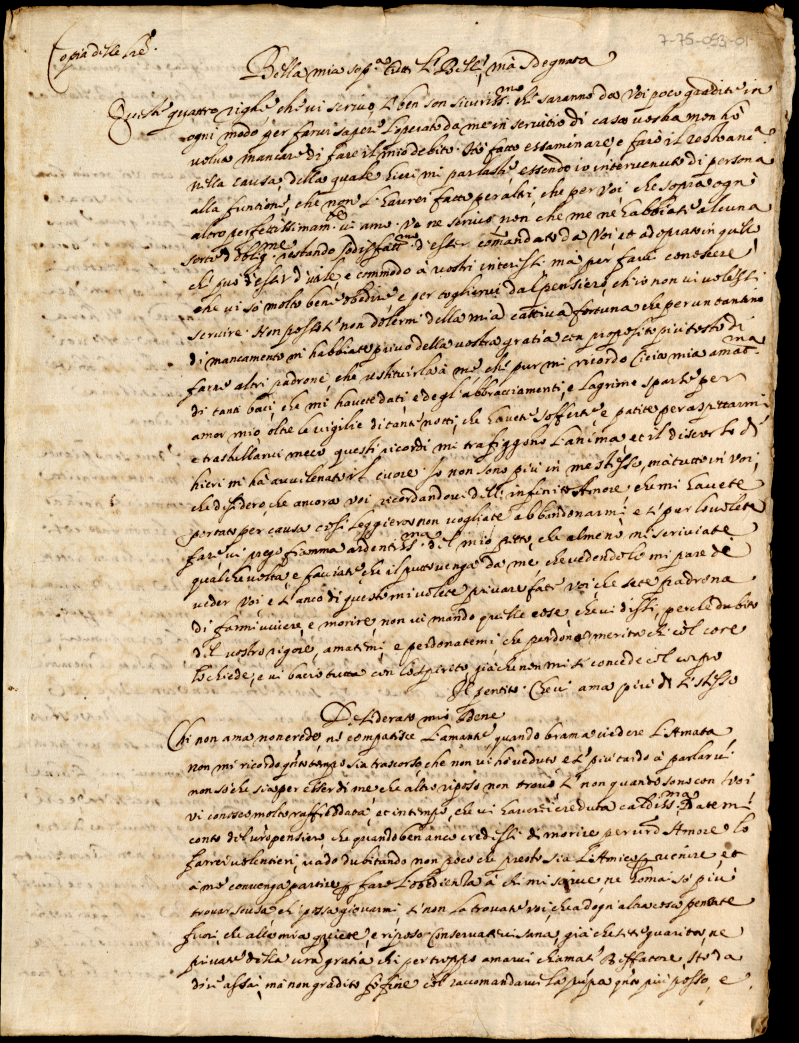 7-75-053-01
Copia delle lre.
Bella mia sop.a tutte le Belle, mà sdegnata
Queste quattro righe che vi scrivo, e ben son sicuriss.mo che saranno da voi poco gradite in
ogni modo per farvi sapere l'operato da me in servitio di casa vostra non hò
voluto mancare di fare il mio debito. Hò fatto essaminare, e fare il
nella causa, della quale hieri mi parlaste, essendo io intervenuto di persona
alla funtione, che non l'haurei fatto per altri, che per voi che sopra ogni
altro perfettissimam.te vi amo. Ve ne scrivo non che me ne habbiate alcuna
sorte d'oblig. restando sodisfatt.mo d'esser comandato da voi, et adoprato in quello
che può esser d'utile, e commodo à vostri interessi, ma per farvi conoscere,
che vi sò molto bene obedire, e per togliervi dal pensiero, ch'io non vi volessi
servire. Non posso se non dolermi della mia cattiva fortuna che per un tantino
di mancamento mi habbiate privo della vostra gratia con proposito più tosto di
fare altri padroni, che restituirla à me, che pur mi ricordo Cicia mia amat.ma
di tanti baci, che mi havete dati, e degl'abbracciamenti, e lagrime sparse per
amor mio, oltre le vigilie di tante notti, che havete sofferte, e patite per aspettarmi
e trastullarvi meco, questi ricordi mi trafiggono l'anima, et il discorso di
hieri mi hà avvelenato il cuore. Io non sono più in me stesso, mà tutto in voi,
che desidero che ancora voi ricordandovi dell'infinito Amore, che mi havete
portato per causa così leggiera non vogliate abbandonarmi, e se pur lo volete
fare, vi prego fiamma ardentiss.ma del mio petto, che almeno mi scriviate
qualche volta, e facciate, che il putto venga da me, che vedendolo mi pare di
veder voi, e se anco di questo mi volete privare fate voi, che sete padrona
di farmi vivere, e morire, non vi mando quelle cose, che vi dissi, perche dubito
del vostro rigore, amatemi, e perdonatemi, che perdono merita chi col core
lo chiede, e vi bacio tutta con lo spirito, già che non mi si concede col corpo
Il pentito. Che vi ama più di se stesso
Desiderato mio Bene
Chi non ama non credo, nè compatisce l'amante, quando brama vedere l'Amata
non mi ricordo q.nto tempo sia trascorso, che non vi hò veduto, e se più tardo à parlarvi
non sò che sia per esser di me che altro riposo non trovo, se non quando sono con voi
vi conosco molto raffreddata, et in tempo, che vi haverei creduta caldiss.ma Datemi
conto del vro pensiero, che quando ben anco credessi di morire per vro Amore lo
farrei volentieri, vado dubitando non poco che presto sia l'Amico p venire, et
à me convenga partire p fare l'obedienza à chi mi scrive, ne homai sò più
trovar scusa che possa giovarmi, se non la trovate voi che ad ogn'altra cosa pensate
fuori, che alla mia quiete, e riposo. Conservatevi sana, già che sete guarita, ne
private della vra gratia chi per troppo amarvi chiamate Beffatore, Hò da
dire assai, mà non gradito p fine col raccomandarvi la pupa q.nto più posso, e